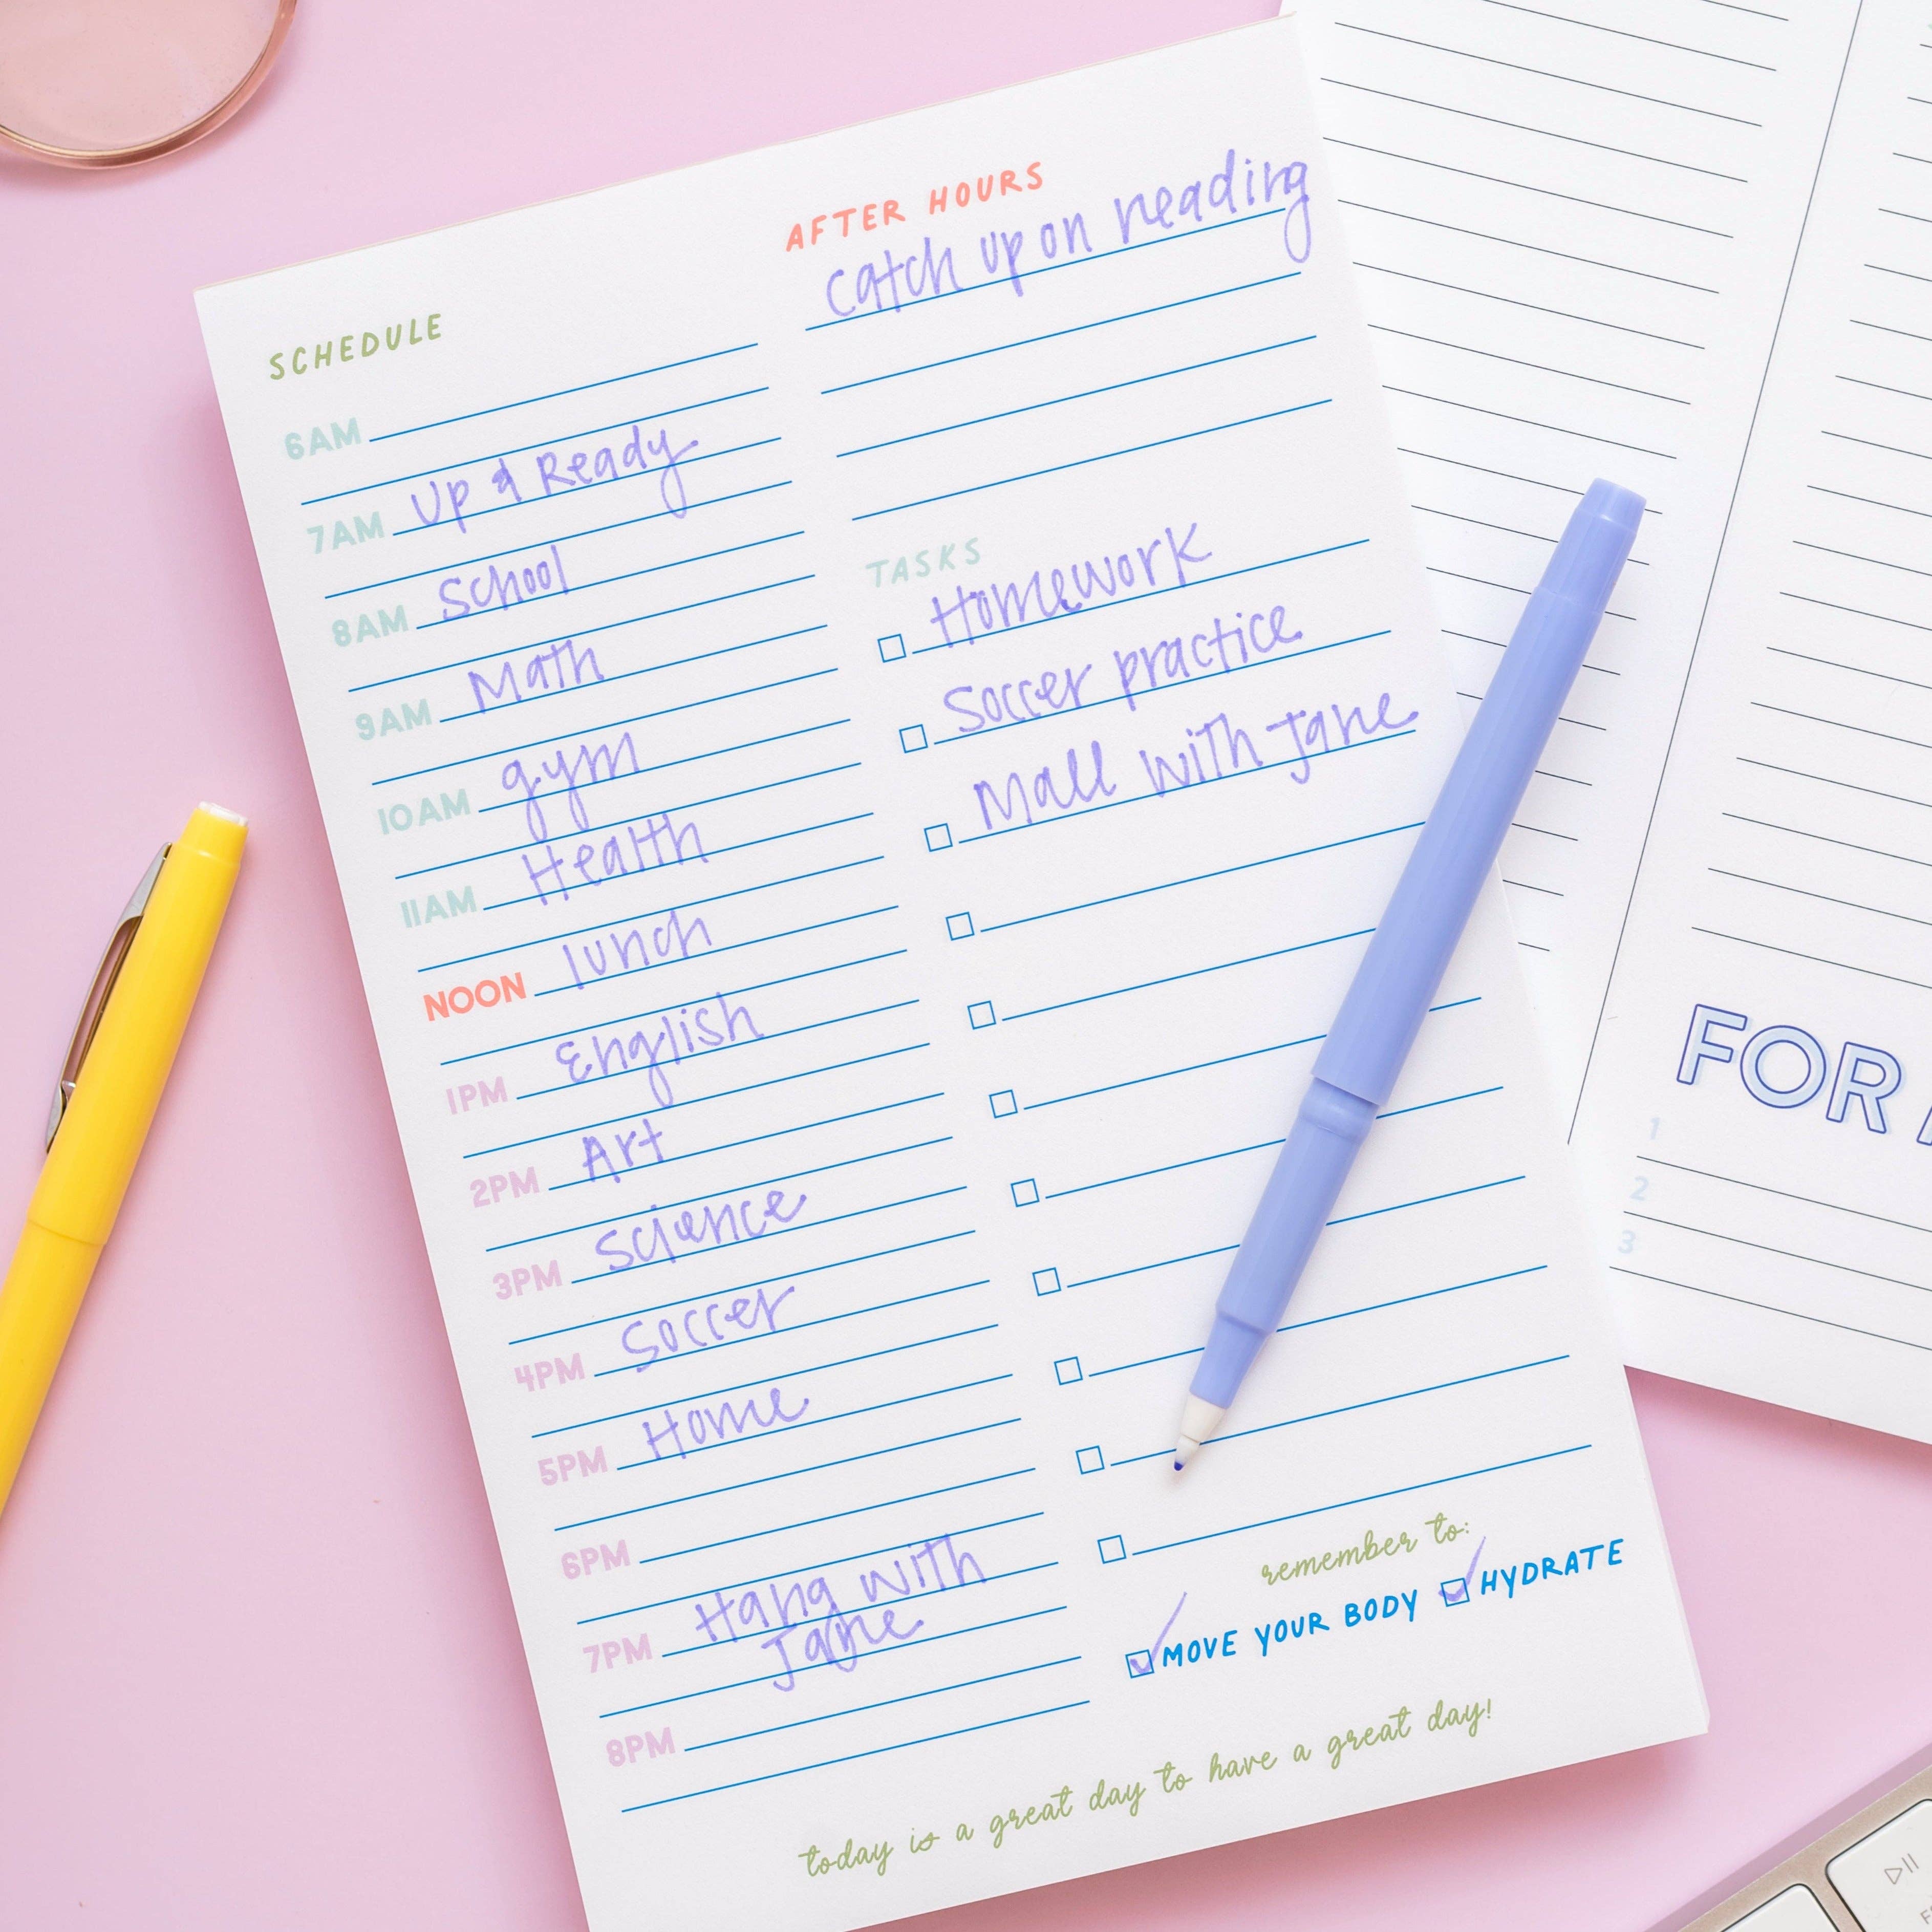 AFTER HOURS
catch up on reading
SCHEDULE
6AM
7AM Up & Ready
8AM School
9AM Math
10AM gym
11AM Health
NOON lunch
1PM English
2PM Art
3PM Science
4PM Soccer
5PM Home
6PM
7PM Hang with
Jane
8PM
TASKS
Homework
Soccer practice
Mall with Jane
remember to:
MOVE YOUR BODY HYDRATE
today is a great day to have a great day!
FOR
1
2
3